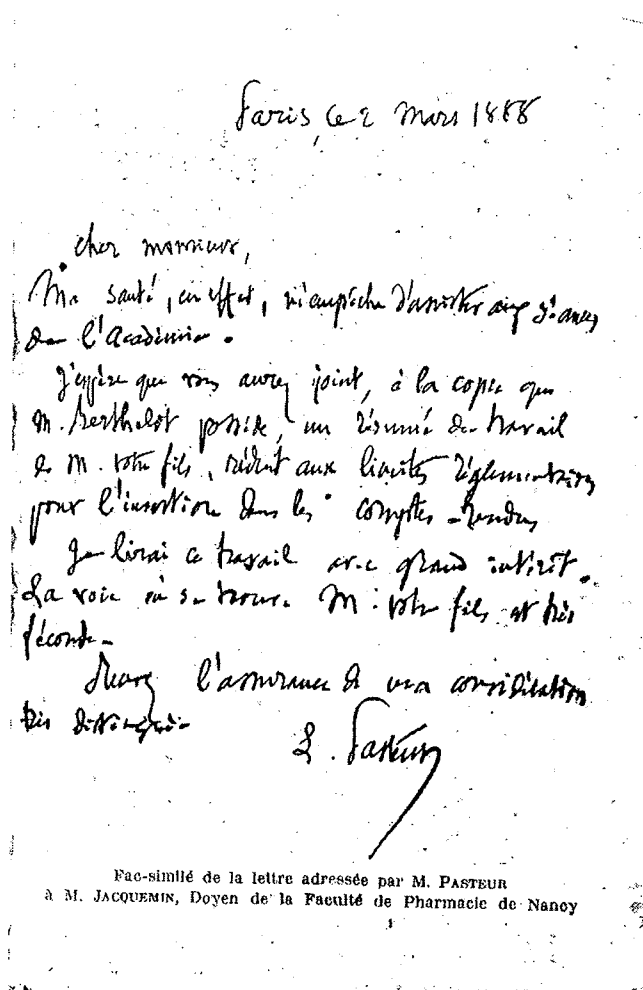 Paris, le 2 Mars 1888
cher monsieur,
Ma santé, en effet, m'empêche d'assister aux séances
de l'Académie.
J'espère que vous aurez joint, à la copie que
M. Berthelot possède, un résumé du travail
de M. votre fils, réduit aux limites réglementaires
pour l'insertion dans les comptes-rendus
Je lirai ce travail avec grand intérêt.
La voie où se trouve M. votre fils est très
féconde.
Recevez l'assurance de ma considération
très distinguée.
L. Pasteur
Fac-similé de la lettre adressée par M. PASTEUR
à M. JACQUEMIN, Doyen de la Faculté de Pharmacie de Nancy